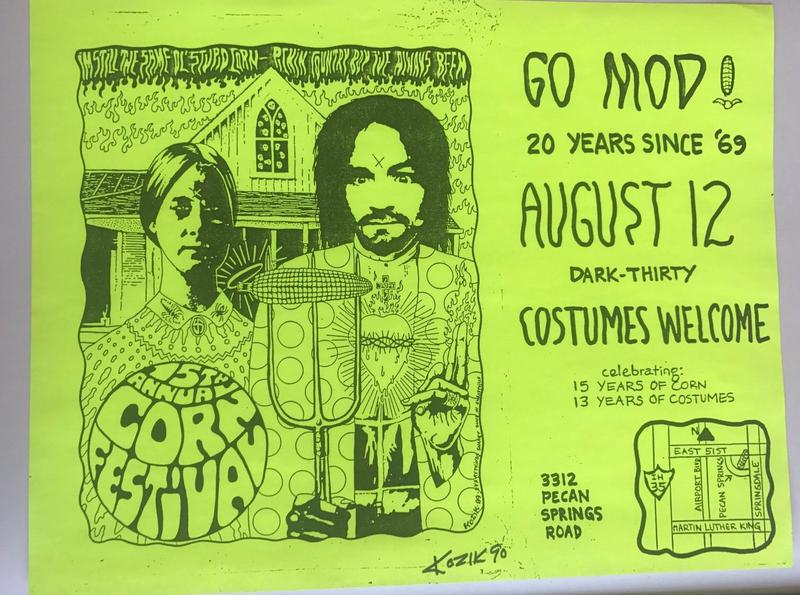 I'M STILL THE SAME OL' STURD CORN – PICKIN' COUNTRY BOY I'VE ALWAYS BEEN
15TH
ANNUAL
CORN
FESTIVAL
KOZIK 90
GO MOD!
20 YEARS SINCE '69
AUGUST 12
DARK-THIRTY
COSTUMES WELCOME
celebrating:
15 YEARS OF CORN
13 YEARS OF COSTUMES
3312
PECAN
SPRINGS
ROAD
N
EAST 51ST
IH
35
AIRPORT BLVD
PECAN SPRINGS
SPRINGDALE
MARTIN LUTHER KING